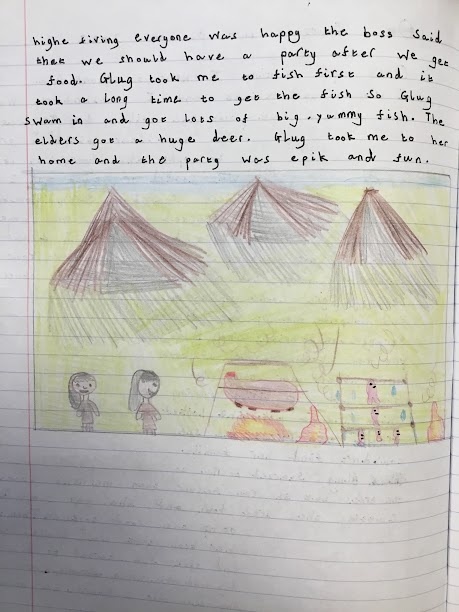 highe fiving everyone was happy the boss said
that we should have a party after we get
food. Glug took me to fish first and it
took a long time to get the fish so Glug
swam in and got lots of big, yummy fish. The
elders got a huge deer. Glug took me to her
home and the party was epik and fun.